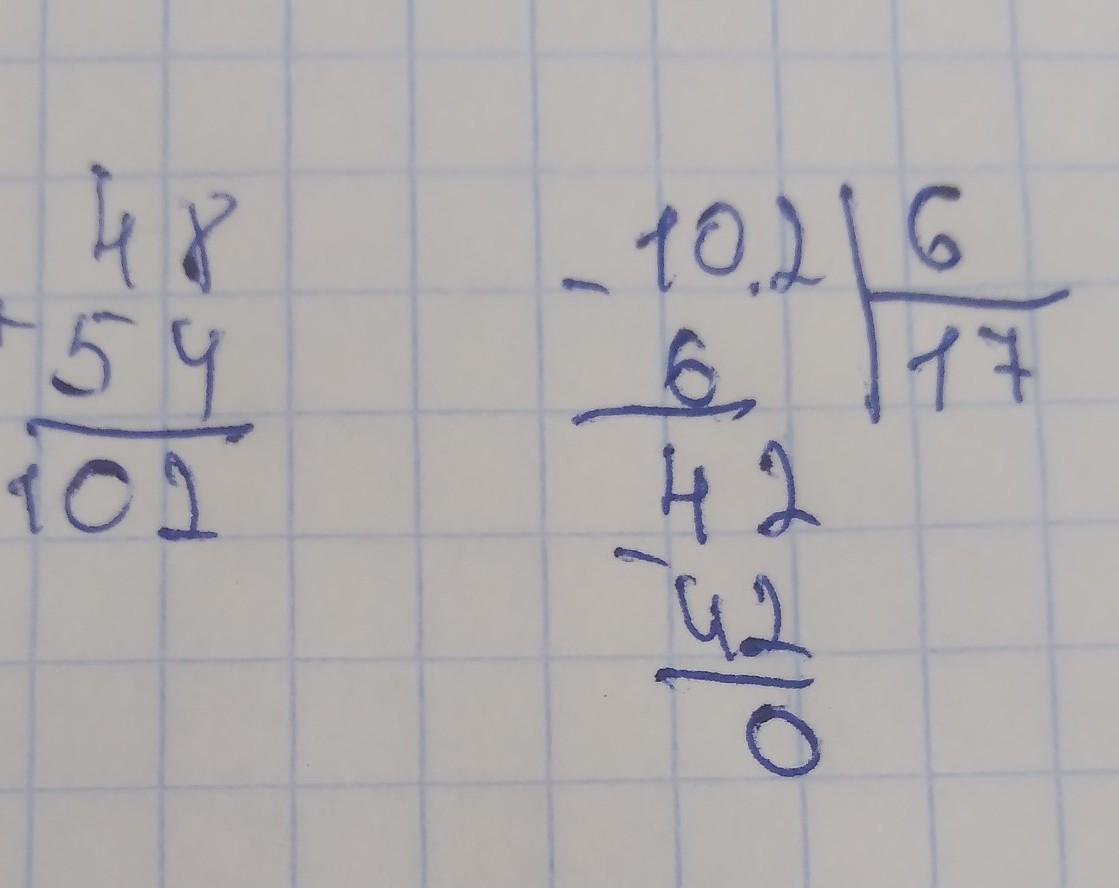 48
+ 54
102
- 10.2 | 6
6 | 17
42
- 42
0